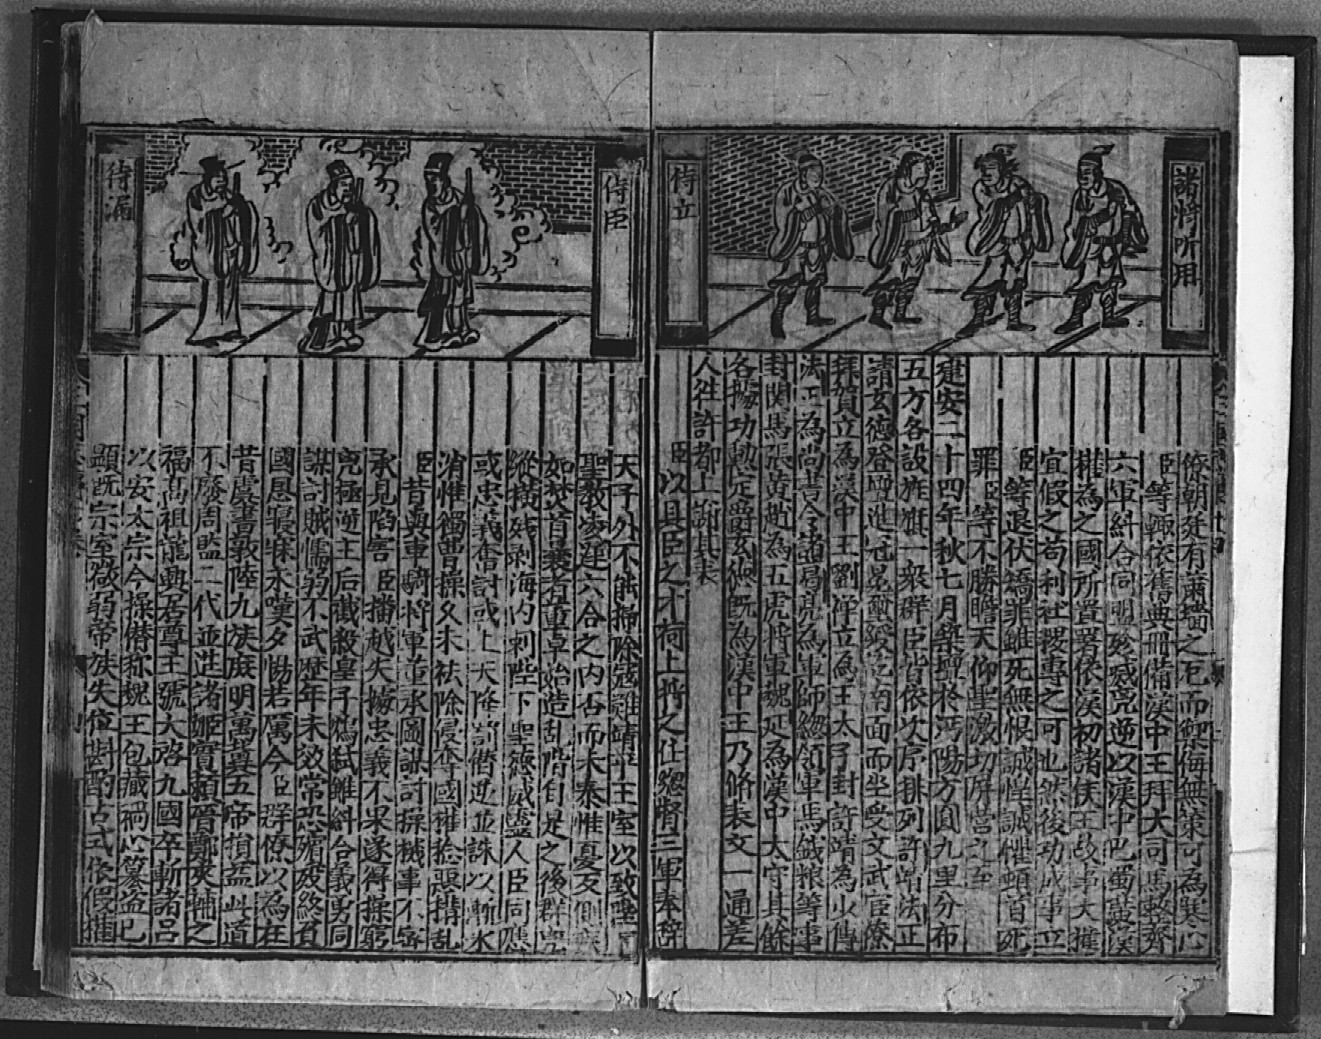 諸將所用
侍立
僚朝廷有蕭墻之危而禦侮無策可為寒心
臣等輒依舊典冊備漢中王拜大司馬整齊
六軍糾合同盟殄滅兇逆以漢中巴蜀廣漢
犍為之國所置署依漢初諸侯王故事夫權
宜假之苟利社稷專之可也然後功成事立
臣等退伏矯罪雖死無恨誠惶誠懼頓首死
罪臣等不勝瞻天仰聖激切屏營之至
建安二十四年秋七月築壇於沔陽方圓九里分布
五方各設旌旗一衆群臣皆依次序排列許靖法正
請玄德登壇進冠冕璽綬訖南面而坐受文武臣僚
拜賀立為漢中王劉禪立為王太子封許靖為少傅
法正為尚書令諸葛亮為軍師總領軍馬錢粮等事
封関馬張黃趙為五虎將軍魏延為漢中太守其餘
各據功勲定爵玄德既為漢中王乃修表文一通差
人徃許都上謝其表
臣以具臣之才荷上將之任總督三軍奉辭
侍臣
待漏
天子外不能掃除寇難靖平王室以致
聖教凌遲六合之內否而未泰惟憂反側
如焚首曩者董卓始造乱階自是之後群兇
縱橫殘剥海內剌陛下聖德威靈人臣同應
或忠義奮討或上天降罰僭逆並誅以漸氷
消惟獨曹操久未祛除侵奪國權恣惡搆乱
臣昔與車騎將軍董承圖謀討操機事不密
承見陷害臣播越失據忠義不果遂得操窮
兇極逆王后戮殺皇子鴆弒雖糾合義勇同
謀討賊懦弱不武歷年未效常恐殞歿終負
國恩寤寐永嘆夕惕若厲今臣群僚以為在
昔虞書敦陸九族庶明萬翼五帝損益此道
不廢周監二代並進諸姬實賴晉鄭夾輔之
福高祖龍興君尊王號大啓九國卒斬諸呂
以安太宗今操僭称魏王包藏禍心簒盗已
顯既宗室微弱帝族失位斟酌古式依假權